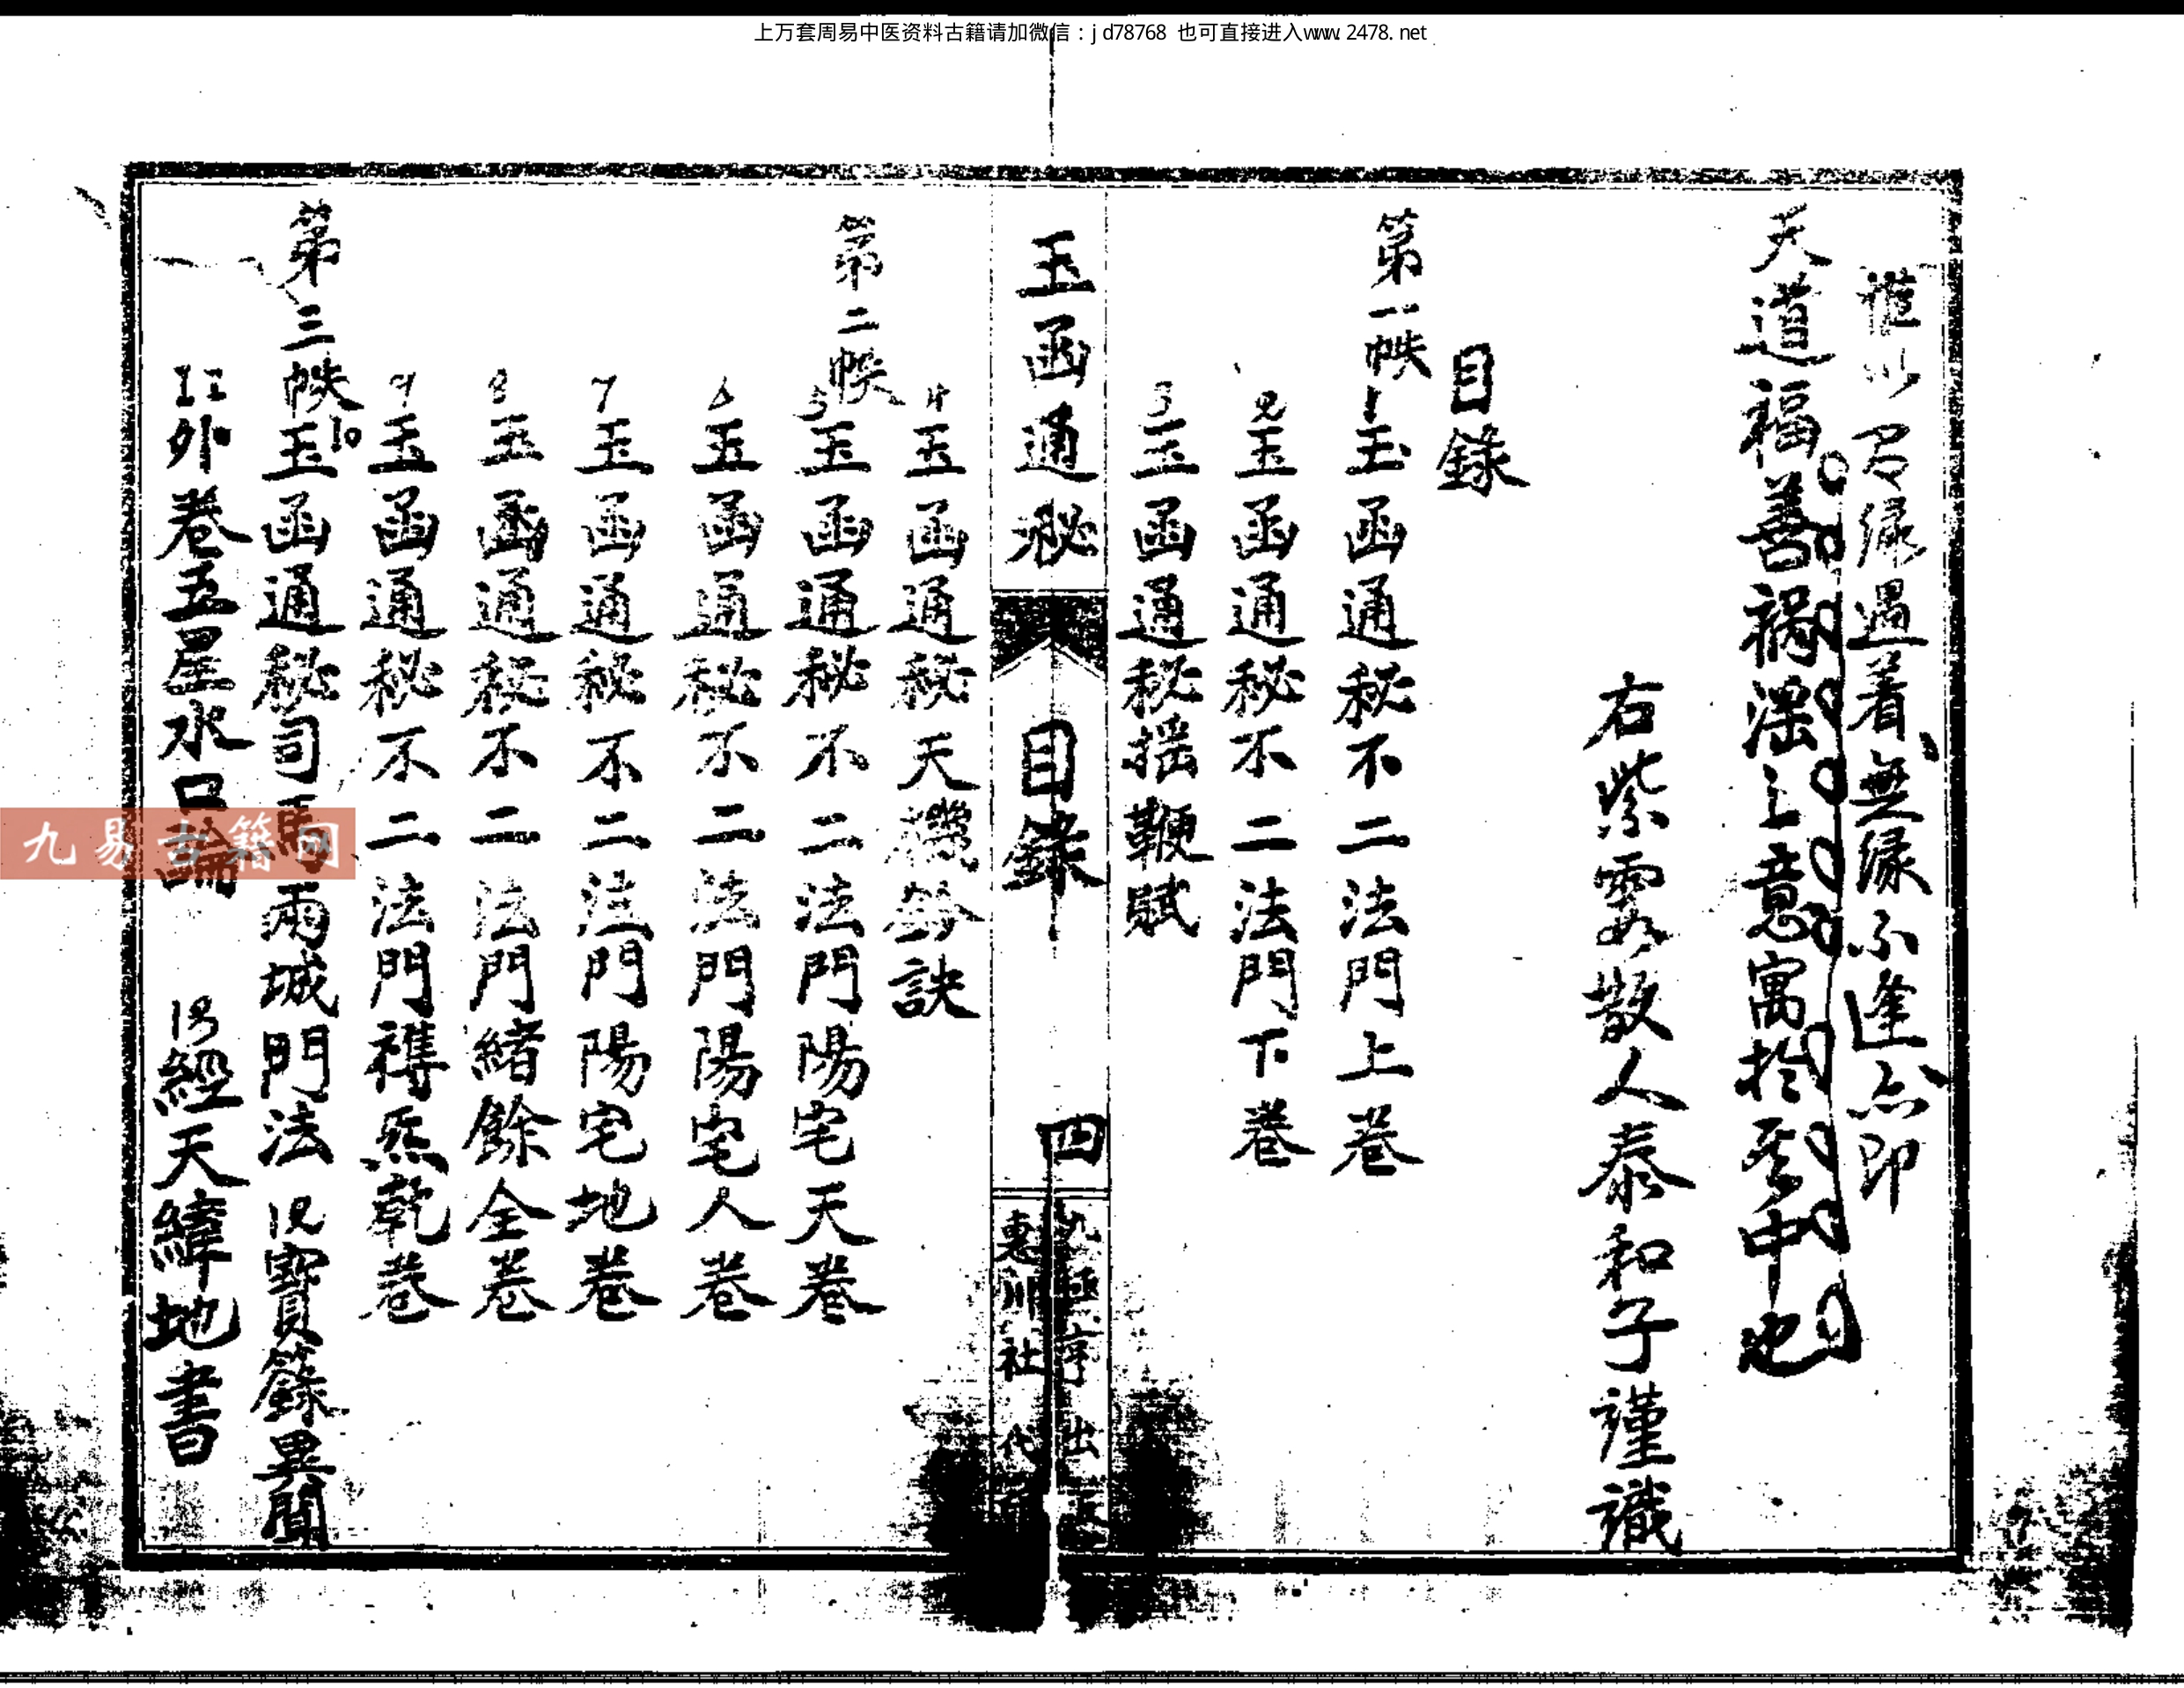 上万套周易中医资料古籍请加微信：jd78768 也可直接进入www.2478.net
惟以君緣遇着無緣不逢亦即
天道福善禍淫之意寓於其中也
右紫霞散人泰和子謹識
目錄
第一帙 1 玉函通秘不二法門上卷
2 玉函通秘不二法門下卷
3 玉函通秘搖鞭賦
玉函通秘 目錄 四
惠川社代
4 玉函通秘天機鈐訣
第二帙 5 玉函通秘不二法門陽宅天卷
6 玉函通秘不二法門陽宅人卷
7 玉函通秘不二法門陽宅地卷
8 玉函通秘不二法門緒餘全卷
9 玉函通秘不二法門乾卷
第三帙 10 玉函通秘司馬兩城門法 12 寶籙異聞
11 外卷五星水口論 13 經天緯地書
九易古籍网